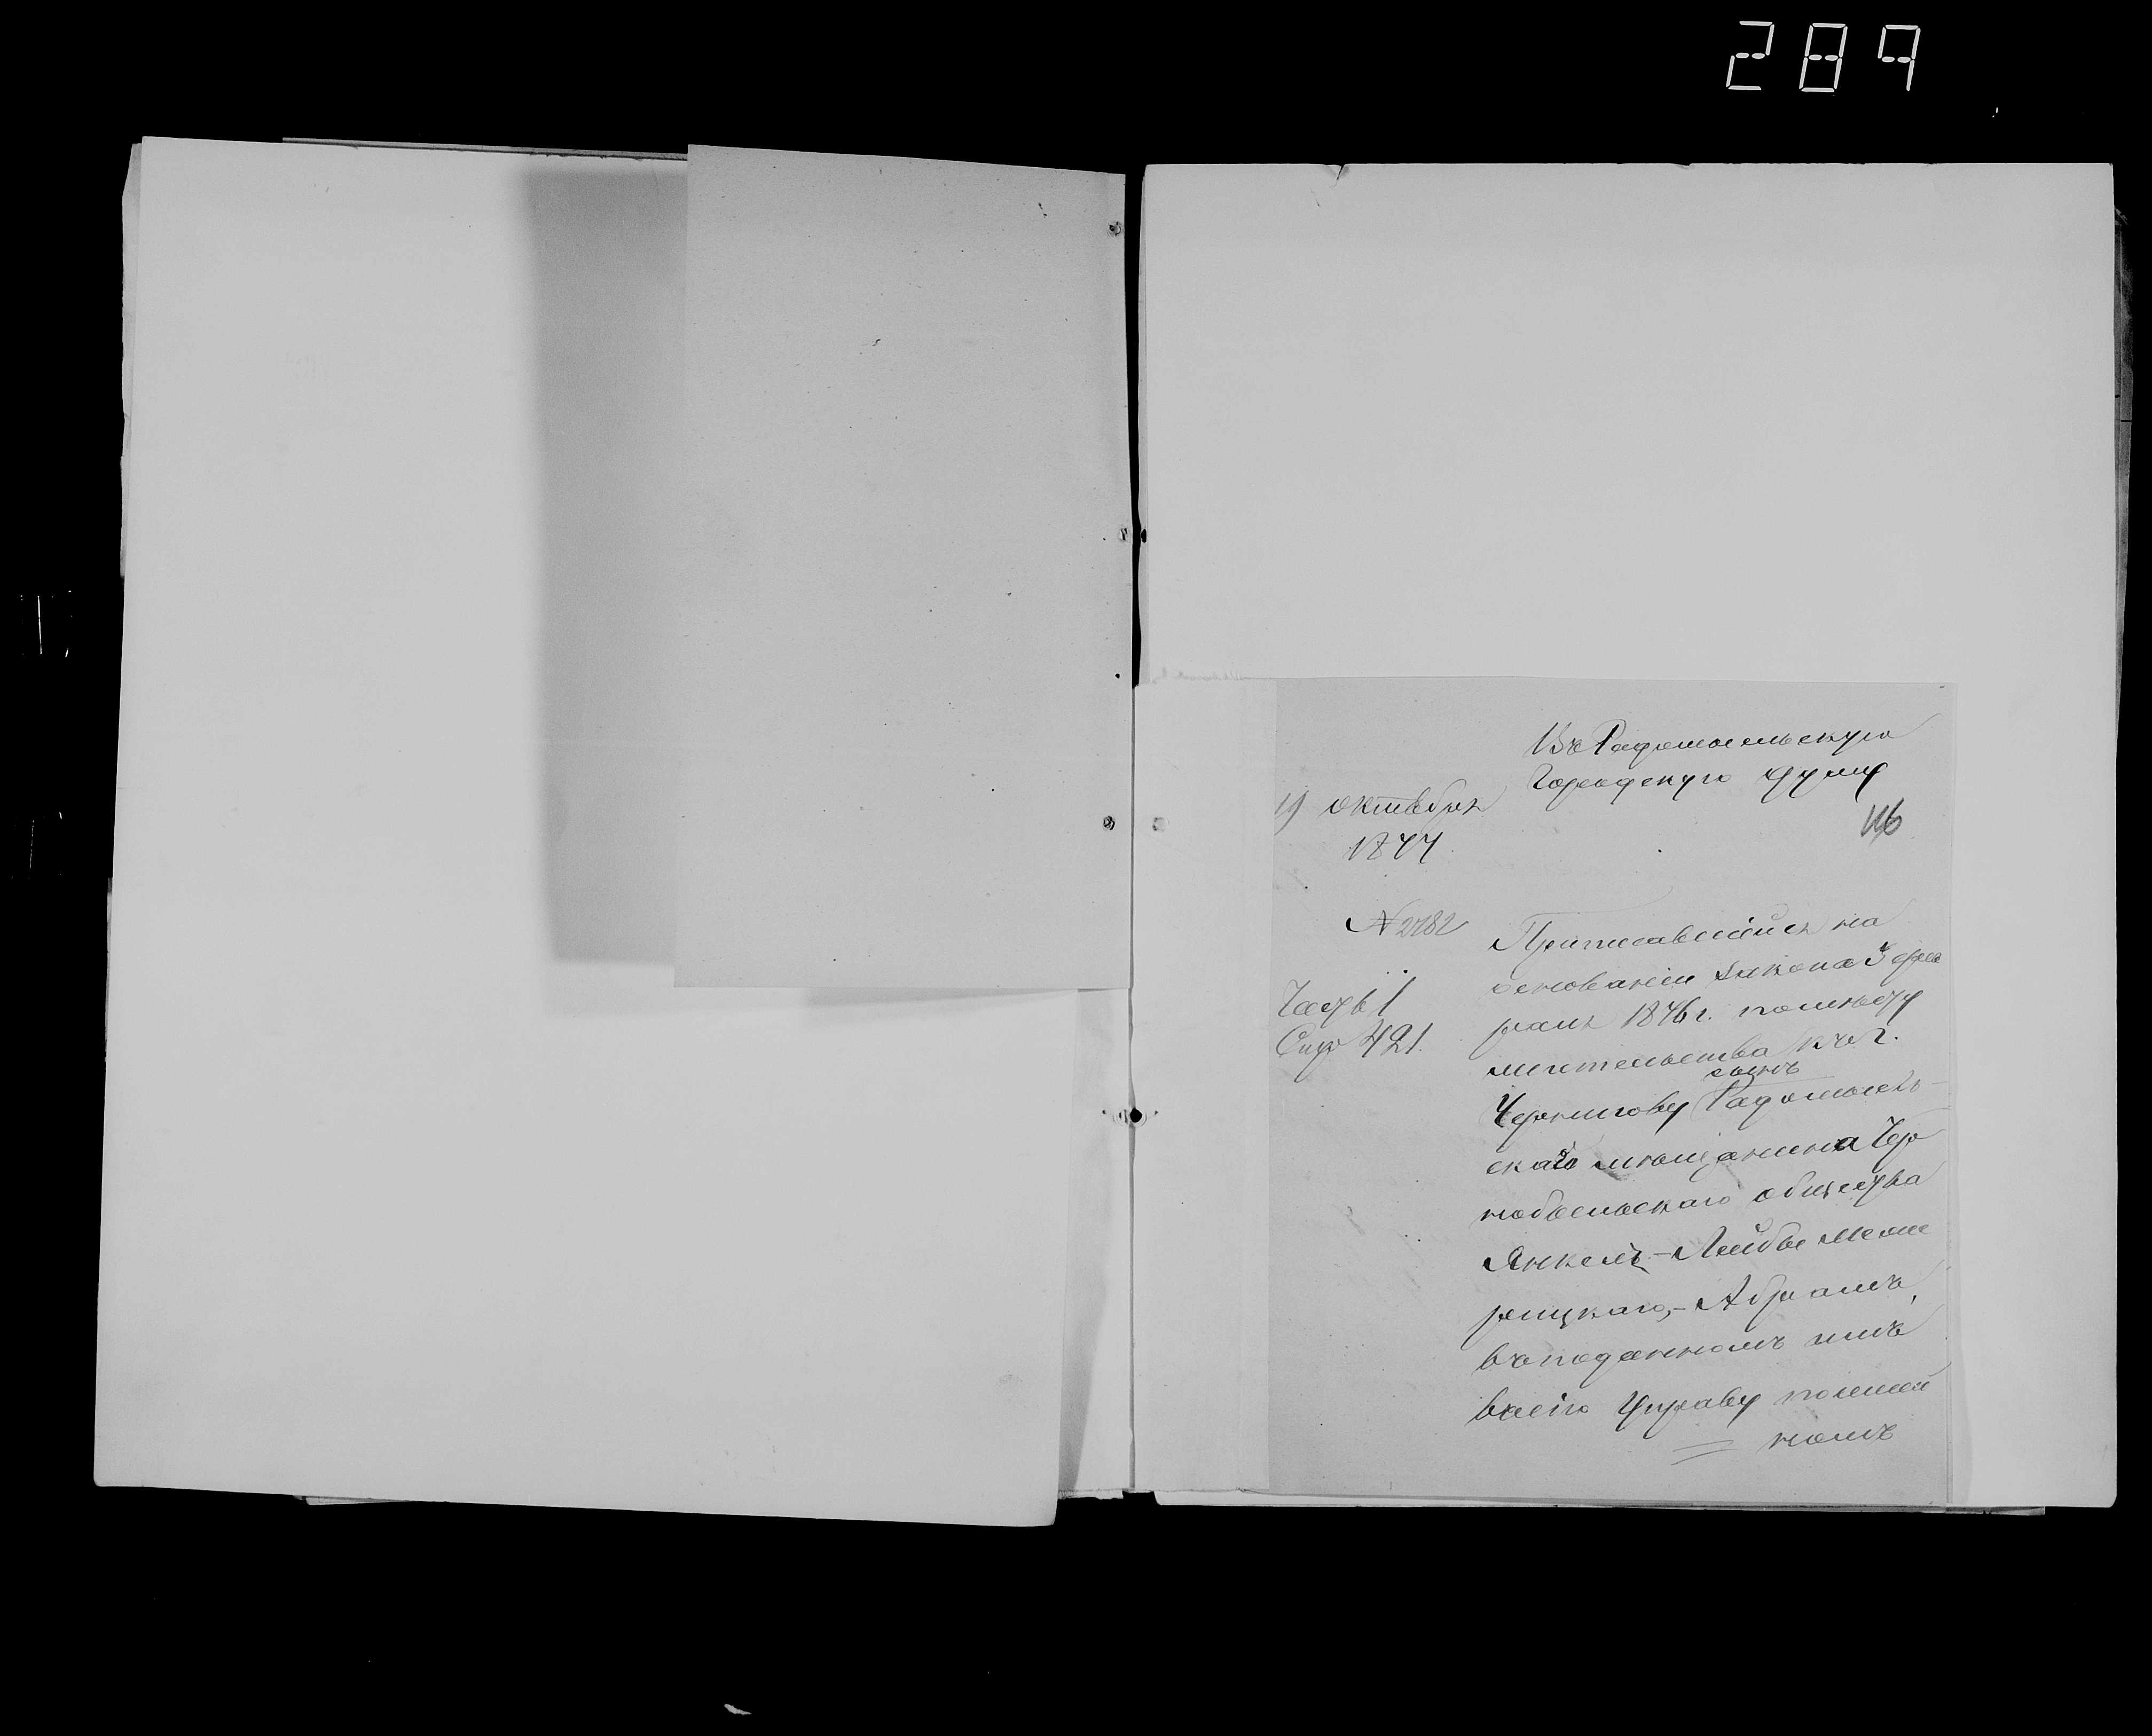 289
Въ Радомысльскую
Городскую Думу
19 октября
1877
116
№ 2782
Часть 1
Стр 421.
Приписавшійся на
основаніи закона 3 фев
раля 1876 г. по мѣсту
жительства къ г.
сынъ
Чернигову Радомысль
скаго мѣщанина Чер
нобыльскаго общества
Янкель-Лейбы Меже
рицкаго,- Абрамъ,
въ поданномъ имъ
въ сію Управу
номъ